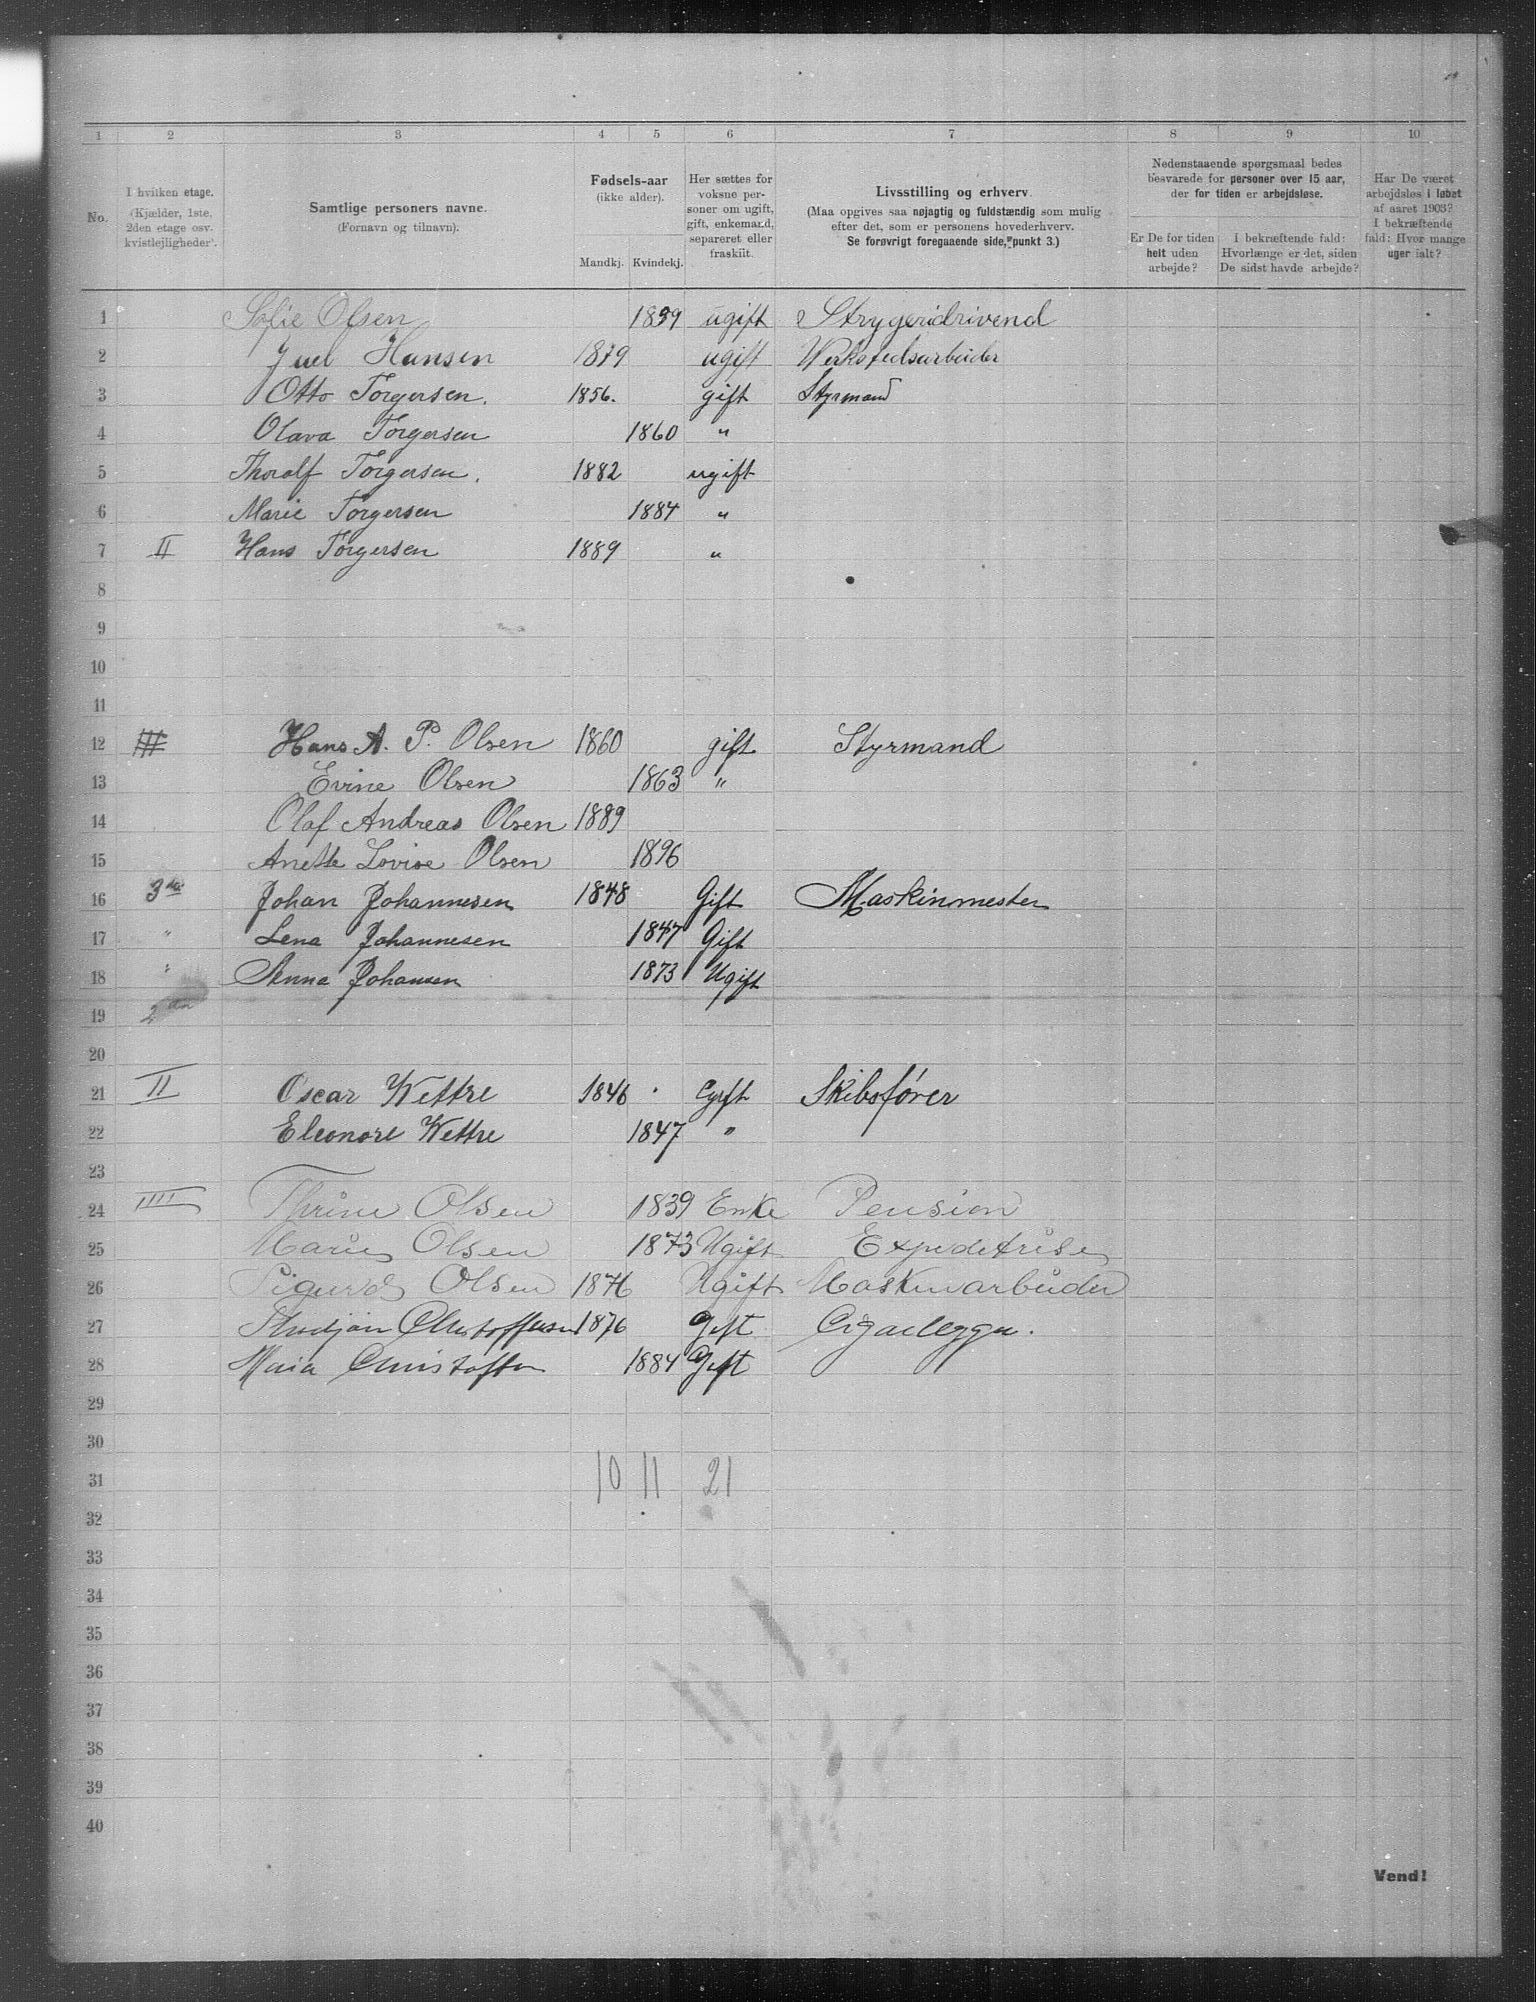 1 2 3 4 5 6 7 8 9 10
No.
I hvilken etage.
(Kjælder, 1ste,
2den etage osv.
kvistlejligheder).
Samtlige personers navne.
(Fornavn og tilnavn).
Fødsels-aar
(ikke alder).
Mandkj. Kvindekj.
Her sættes for
voksne per-
soner om ugift,
gift, enkemand,
separeret eller
fraskilt.
Livsstilling og erhverv.
(Maa opgives saa nøjagtig og fuldstændig som mulig
efter det, som er personens hovederhverv.
Se forøvrigt foregaaende side, punkt 3.)
Nedenstaaende spørgsmaal bedes
besvarede for personer over 15 aar,
der for tiden er arbejdsløse.
Er De for tiden
helt uden
arbejde?
I bekræftende fald:
Hvorlænge er det, siden
De sidst havde arbejde?
Har De været
arbejdsløs i løbet
af aaret 1903?
I bekræftende
fald: Hvor mange
uger ialt?
1 Sofie Olsen 1859 ugift Strygeridrivend
2 Juel Hansen 1879 ugift Verkstedsarbeider
3 Otto Torgersen. 1856. gift Styrmand
4 Olava Torgersen 1860 "
5 Thoralf Torgersen. 1882 ugift
6 Marie Torgersen 1884 "
7 II Hans Torgersen 1889 "
8
9
10
11
12 Hans A. P. Olsen 1860 gift Styrmand
13 Evine Olsen 1863 "
14 Olaf Andreas Olsen 1889
15 Anette Lovise Olsen 1896
16 3die Johan Johannesen 1848 Gift Maskinmester
17 " Lena Johannesen 1847 Gift
18 " Anna Johansen 1873 Ugift
19 2den
20
21 II Oscar Wettre 1846 Gift Skibsfører
22 Eleonore Wettre 1847 "
23
24 IIII Thrine Olsen 1839 Enke Pension
25 Marie Olsen 1873 Ugift Expeditrise
26 Sigurd Olsen 1876 Ugift Maskinarbeider
27 Christoffersen 1876 Gift
28 1884 Gift
29
30
31 10 11 21
32
33
34
35
36
37
38
39
40
Vend!